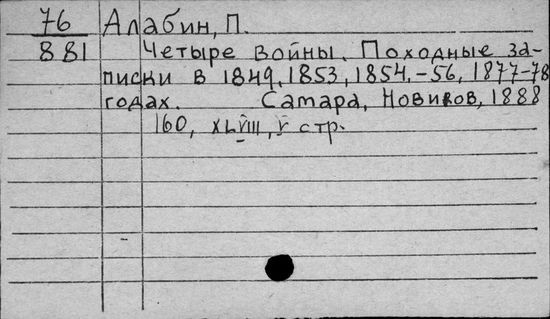 76 Алабин, П.
881 Четыре войны. Походные за-
писки в 1849, 1853, 1854, -56, 1877-78
годах. Самара, Новиков, 1888
160, XLVIII, V стр.